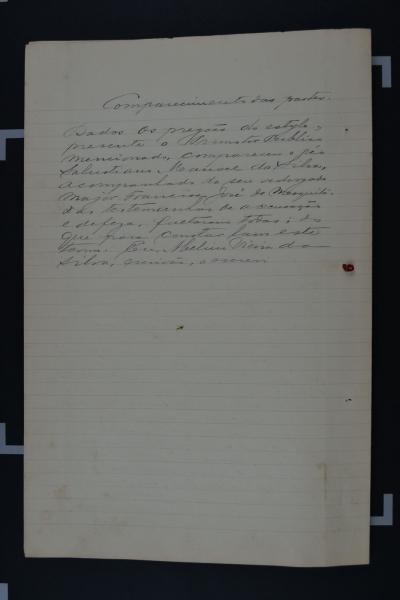 Comparecimento das partes.
Dados os pregões do estylo,
presente o Ministro Publico
mencionado, compareceu o réo
Salustiano Manoel da Silva,
acompanhado do seu advogado
Major Francisco José de Mesquita.
das testemunhas de accusação
e defeza, faltaram todas; do
que para constar lavro este
termo. Eu, Vieira da
Silva, escrivão, o escrevi